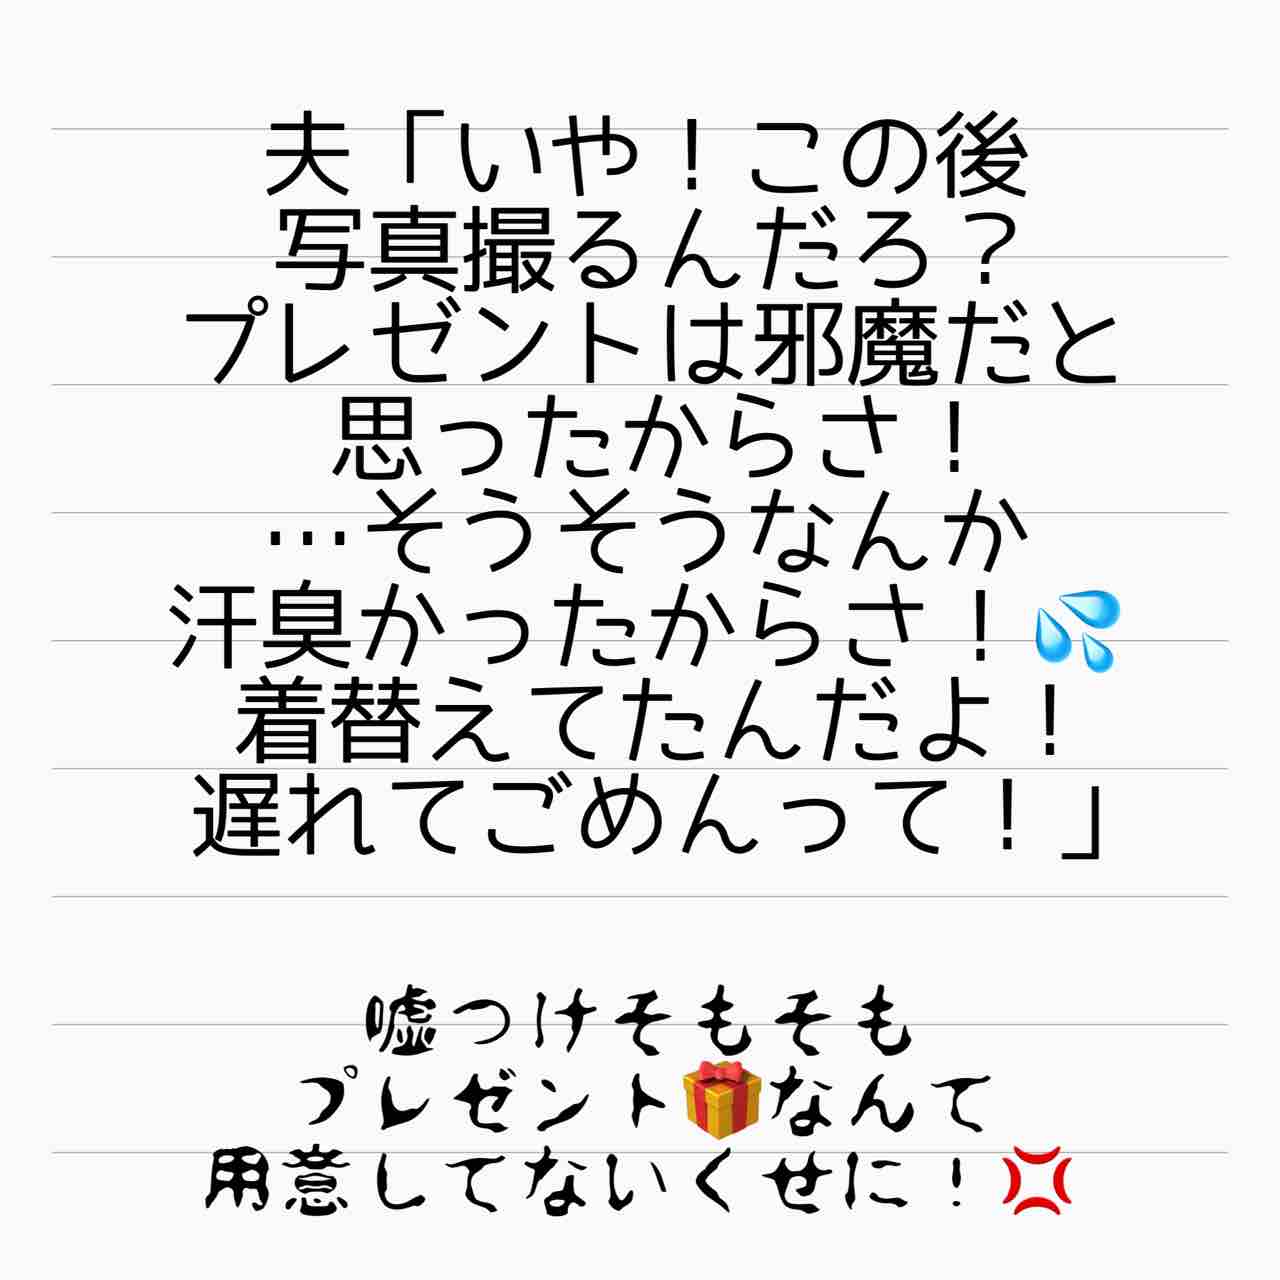 夫「いや！この後
写真撮るんだろ？
プレゼントは邪魔だと
思ったからさ！
…そうそうなんか
汗臭かったからさ！💦
着替えてたんだよ！
遅れてごめんって！」
嘘つけそもそも
プレゼント🎁なんて
用意してないくせに！💢